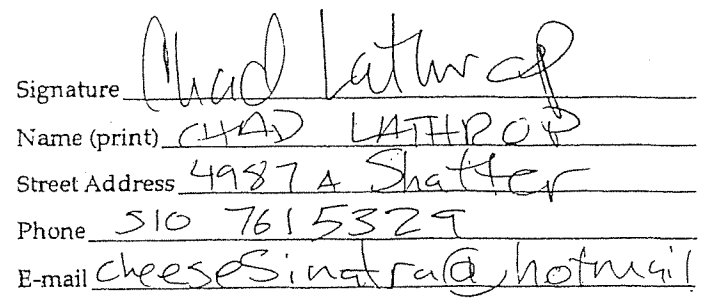 Signature Chad Lathrop
Name (print) CHAD LATHROP
Street Address 4987 A Shatter
Phone 510 761 5329
E-mail cheeseSinatra@hotmail